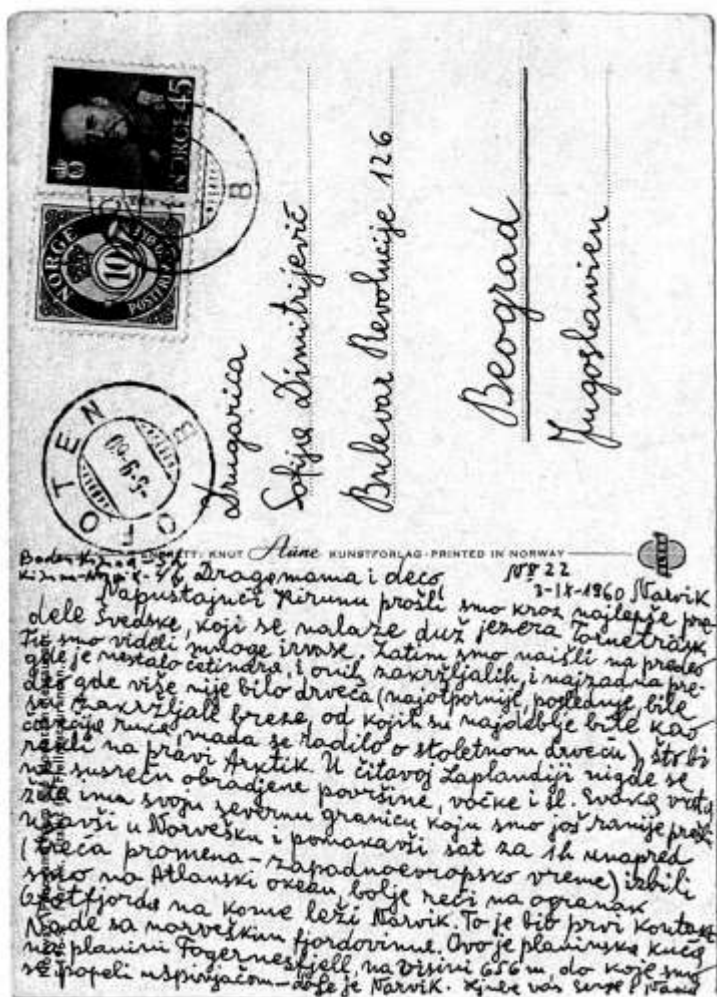 NORGE 45
NORGE
10
POSTFRIM
LOFOTEN
5-9-60
B
Drugarica
Sofija Dimitrijević
Bulevar Revolucije 126
Beograd
Jugoslawien
ENERETT: KNUT Aune KUNSTFORLAG - PRINTED IN NORWAY
No 22
3-IX-1960 Narvik
Draga mama i deco,
Napustajući Kirunu prošli smo kroz najlepše pre
dele Švedske, koji se nalaze duž jezera Torneträsk
Tu smo videli mnoge irvase. Zatim smo naišli na predeo
gde je nestalo četinara, i onih zakržljalih, i najzad na pre-
deo gde više nije bilo drveća (najotpornije, poslednje, bile
su zakržljale breze, od kojih su najdeblje bile kao
čovečije ruke, mada se radilo o stoletnom drveću), što bi
rekli na pravi Arktik. U čitavoj Laplandiji nigde se
ne susreću obradjene površine, voćke i sl. Svaka vrsta
žita ima svoju severnu granicu koju smo još ranije prešli
ušavši u Norvešku i pomakavši sat za 1h unapred
(treća promena - zapadnoevropsko vreme) izbili
smo na Atlanski okean bolje reći na ogranak
Ofotfjorda na kome leži Narvik. To je bio prvi kontakt
Nade sa norveškim fjordovima. Ovo je planinska kuća
na planini Fagernesfjell, na visini 656 m, do koje smo
se popeli uspinjačom - dole je Narvik. Ljube vas